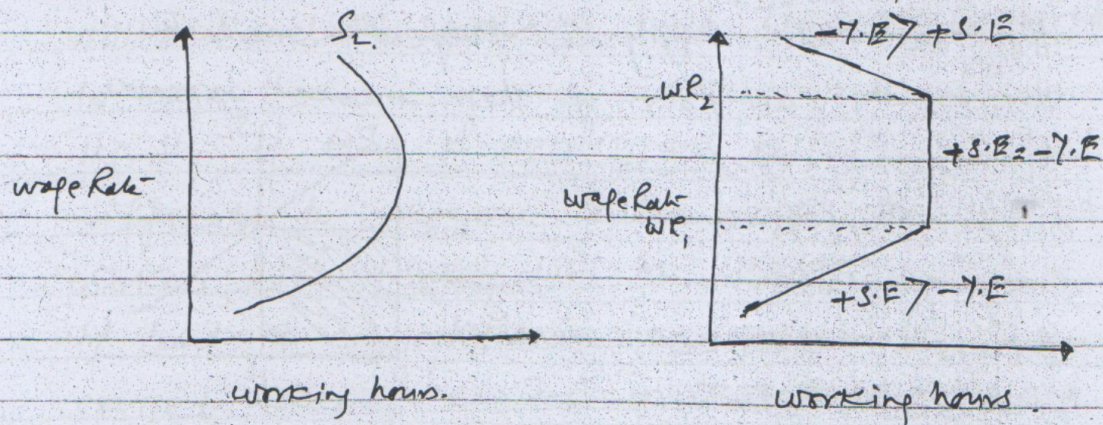 S_L.
wage Rate
working hours.
-Y.E > +S.E
WR₂
+S.E = -Y.E
wage Rate
WR₁
+S.E > -Y.E
working hours.